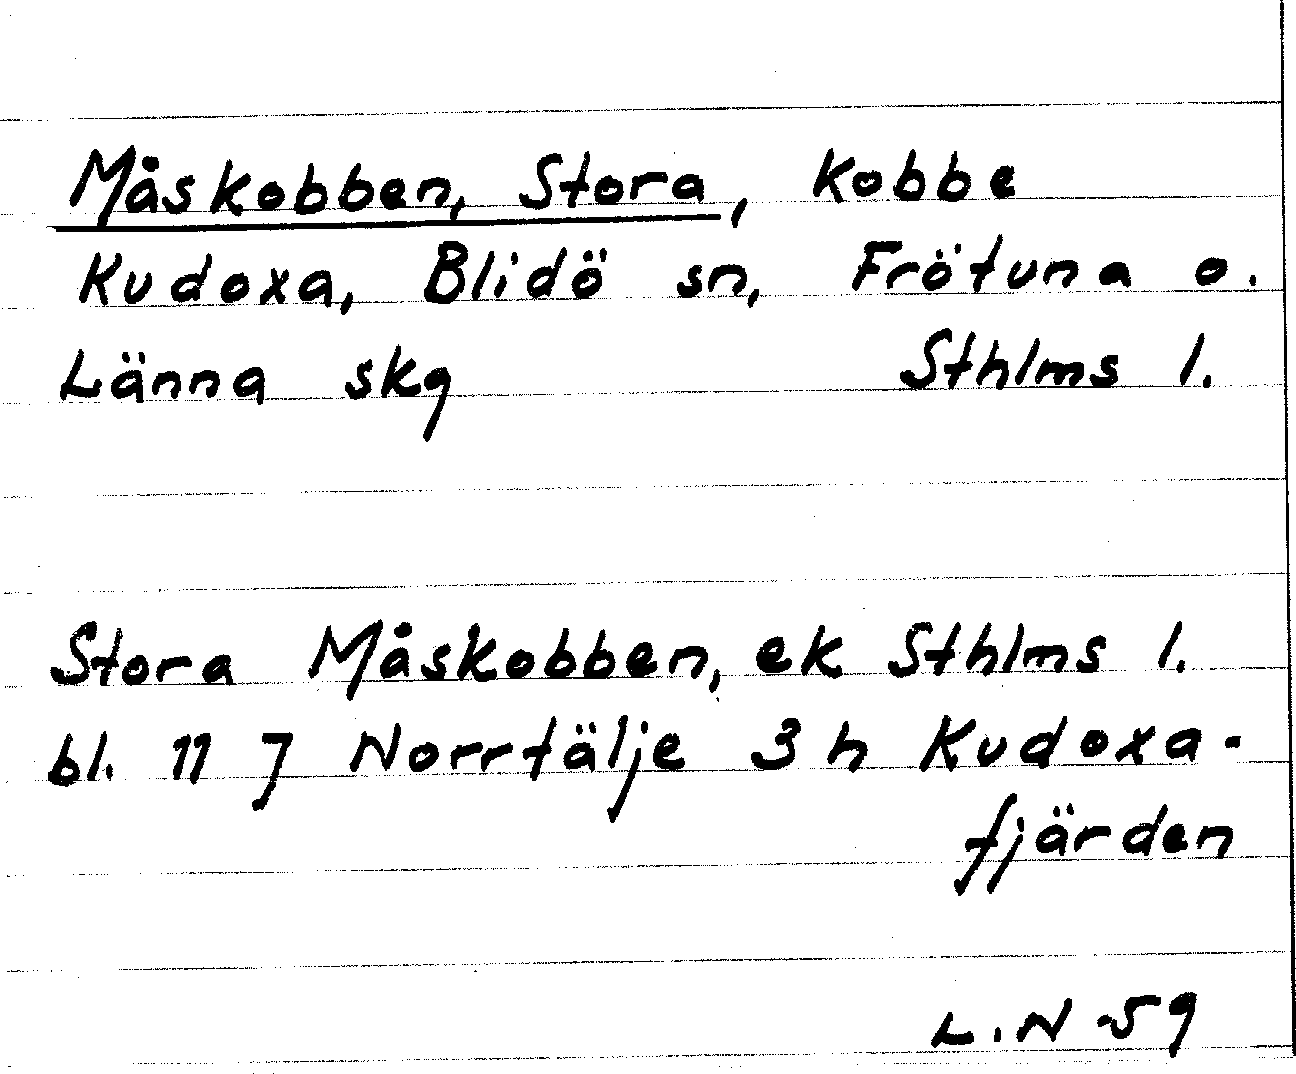 Måskobben, Stora, kobbe
Kudoxa, Blidö sn, Frötuna o.
Länna skg Sthlms l.
Stora Måskobben, ek Sthlms l.
bl. 11 J Norrtälje 3 h Kudoxa-
fjärden
L.N -59